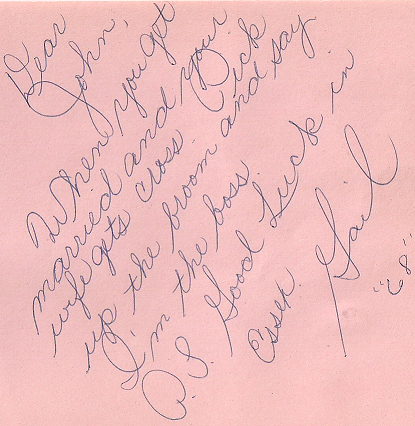 Dear
John,
When you get
married and your
wife gets cross. Pick
up the broom and say
I'm the boss.
P.S. Good Luck in
Essex.
Gail
"68"